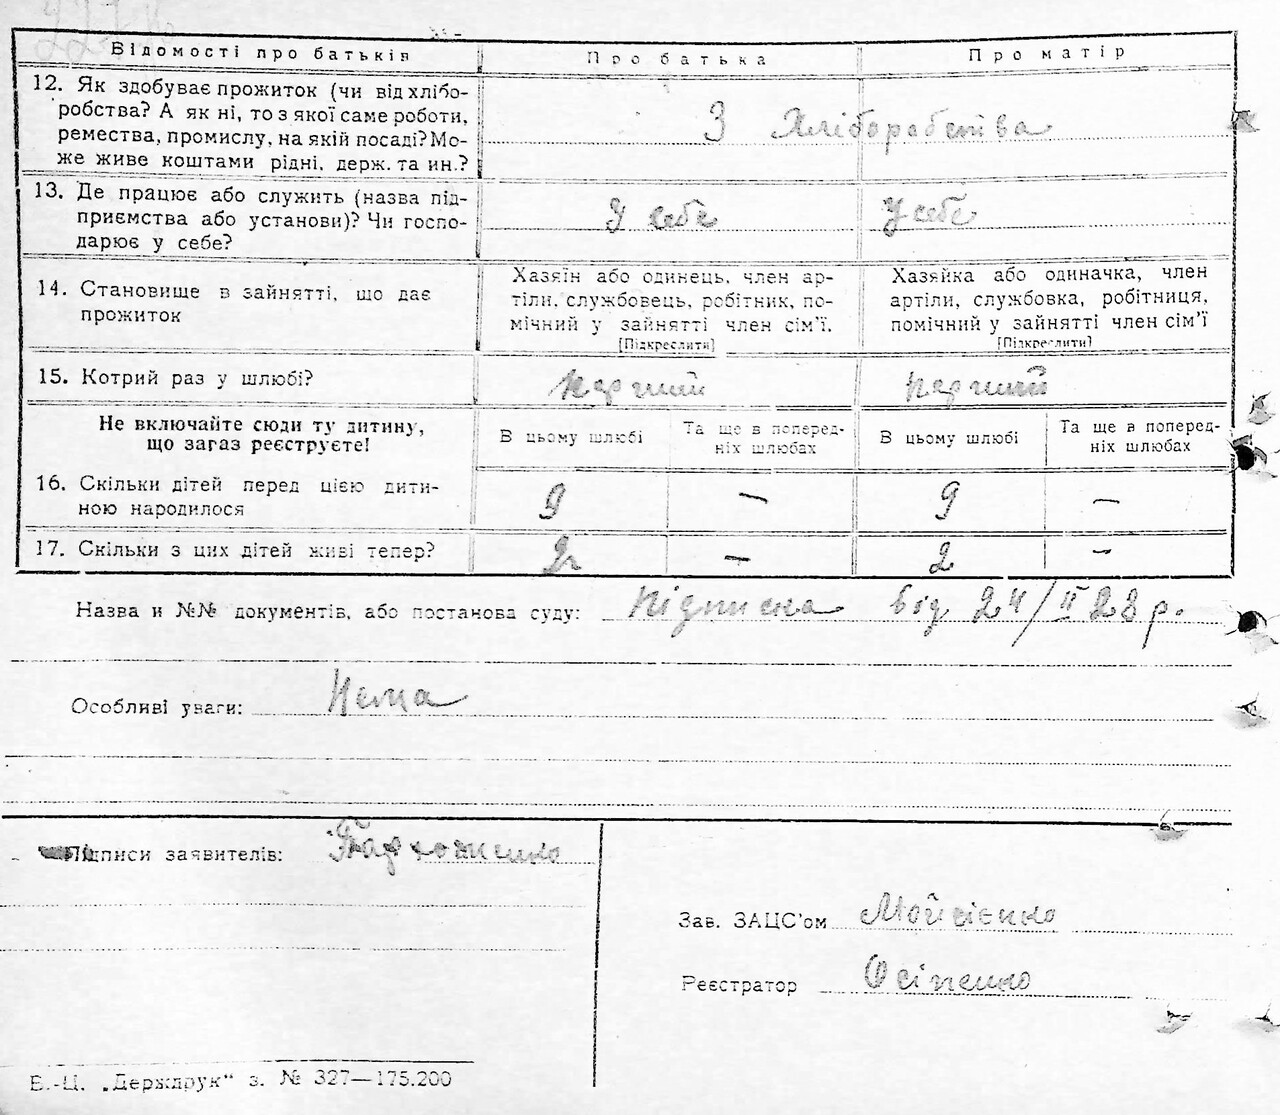 Відомості про батьків Про батька Про матір
12. Як здобуває прожиток (чи від хлібо-
робства? А як ні, то з якої саме роботи,
ремества, промислу, на якій посаді? Мо-
же живе коштами рідні, держ. та ин.?
З Хліборобства
13. Де працює або служить (назва під-
приємства або установи)? Чи госпо-
дарює у себе?
У себе У себе
14. Становище в зайнятті, що дає
прожиток
Хазяїн або одинець, член ар-
тіли, службовець, робітник, по-
мічний у зайнятті член сім'ї.
[Підкреслити]
Хазяйка або одиначка, член
артіли, службовка, робітниця,
помічний у зайнятті член сім'ї
[Підкреслити]
15. Котрий раз у шлюбі? перший перший
Не включайте сюди ту дитину,
що загаз реєструєте!
В цьому шлюбі
Та ще в поперед-
ніх шлюбах
В цьому шлюбі
Та ще в поперед-
ніх шлюбах
16. Скільки дітей перед цією дити-
ною народилося
9 — 9 —
17. Скільки з цих дітей живі тепер? 2 — 2 —
Назва и №№ документів, або постанова суду: Підписка від 24/II 28 р.
Особливі уваги: Нема
Підписи заявителів: Пархоменко
Зав. ЗАЦС'ом Мойсієнко
Реєстратор Осіпенко
Б.-Ц. „Держдрук" з. № 327—175.200